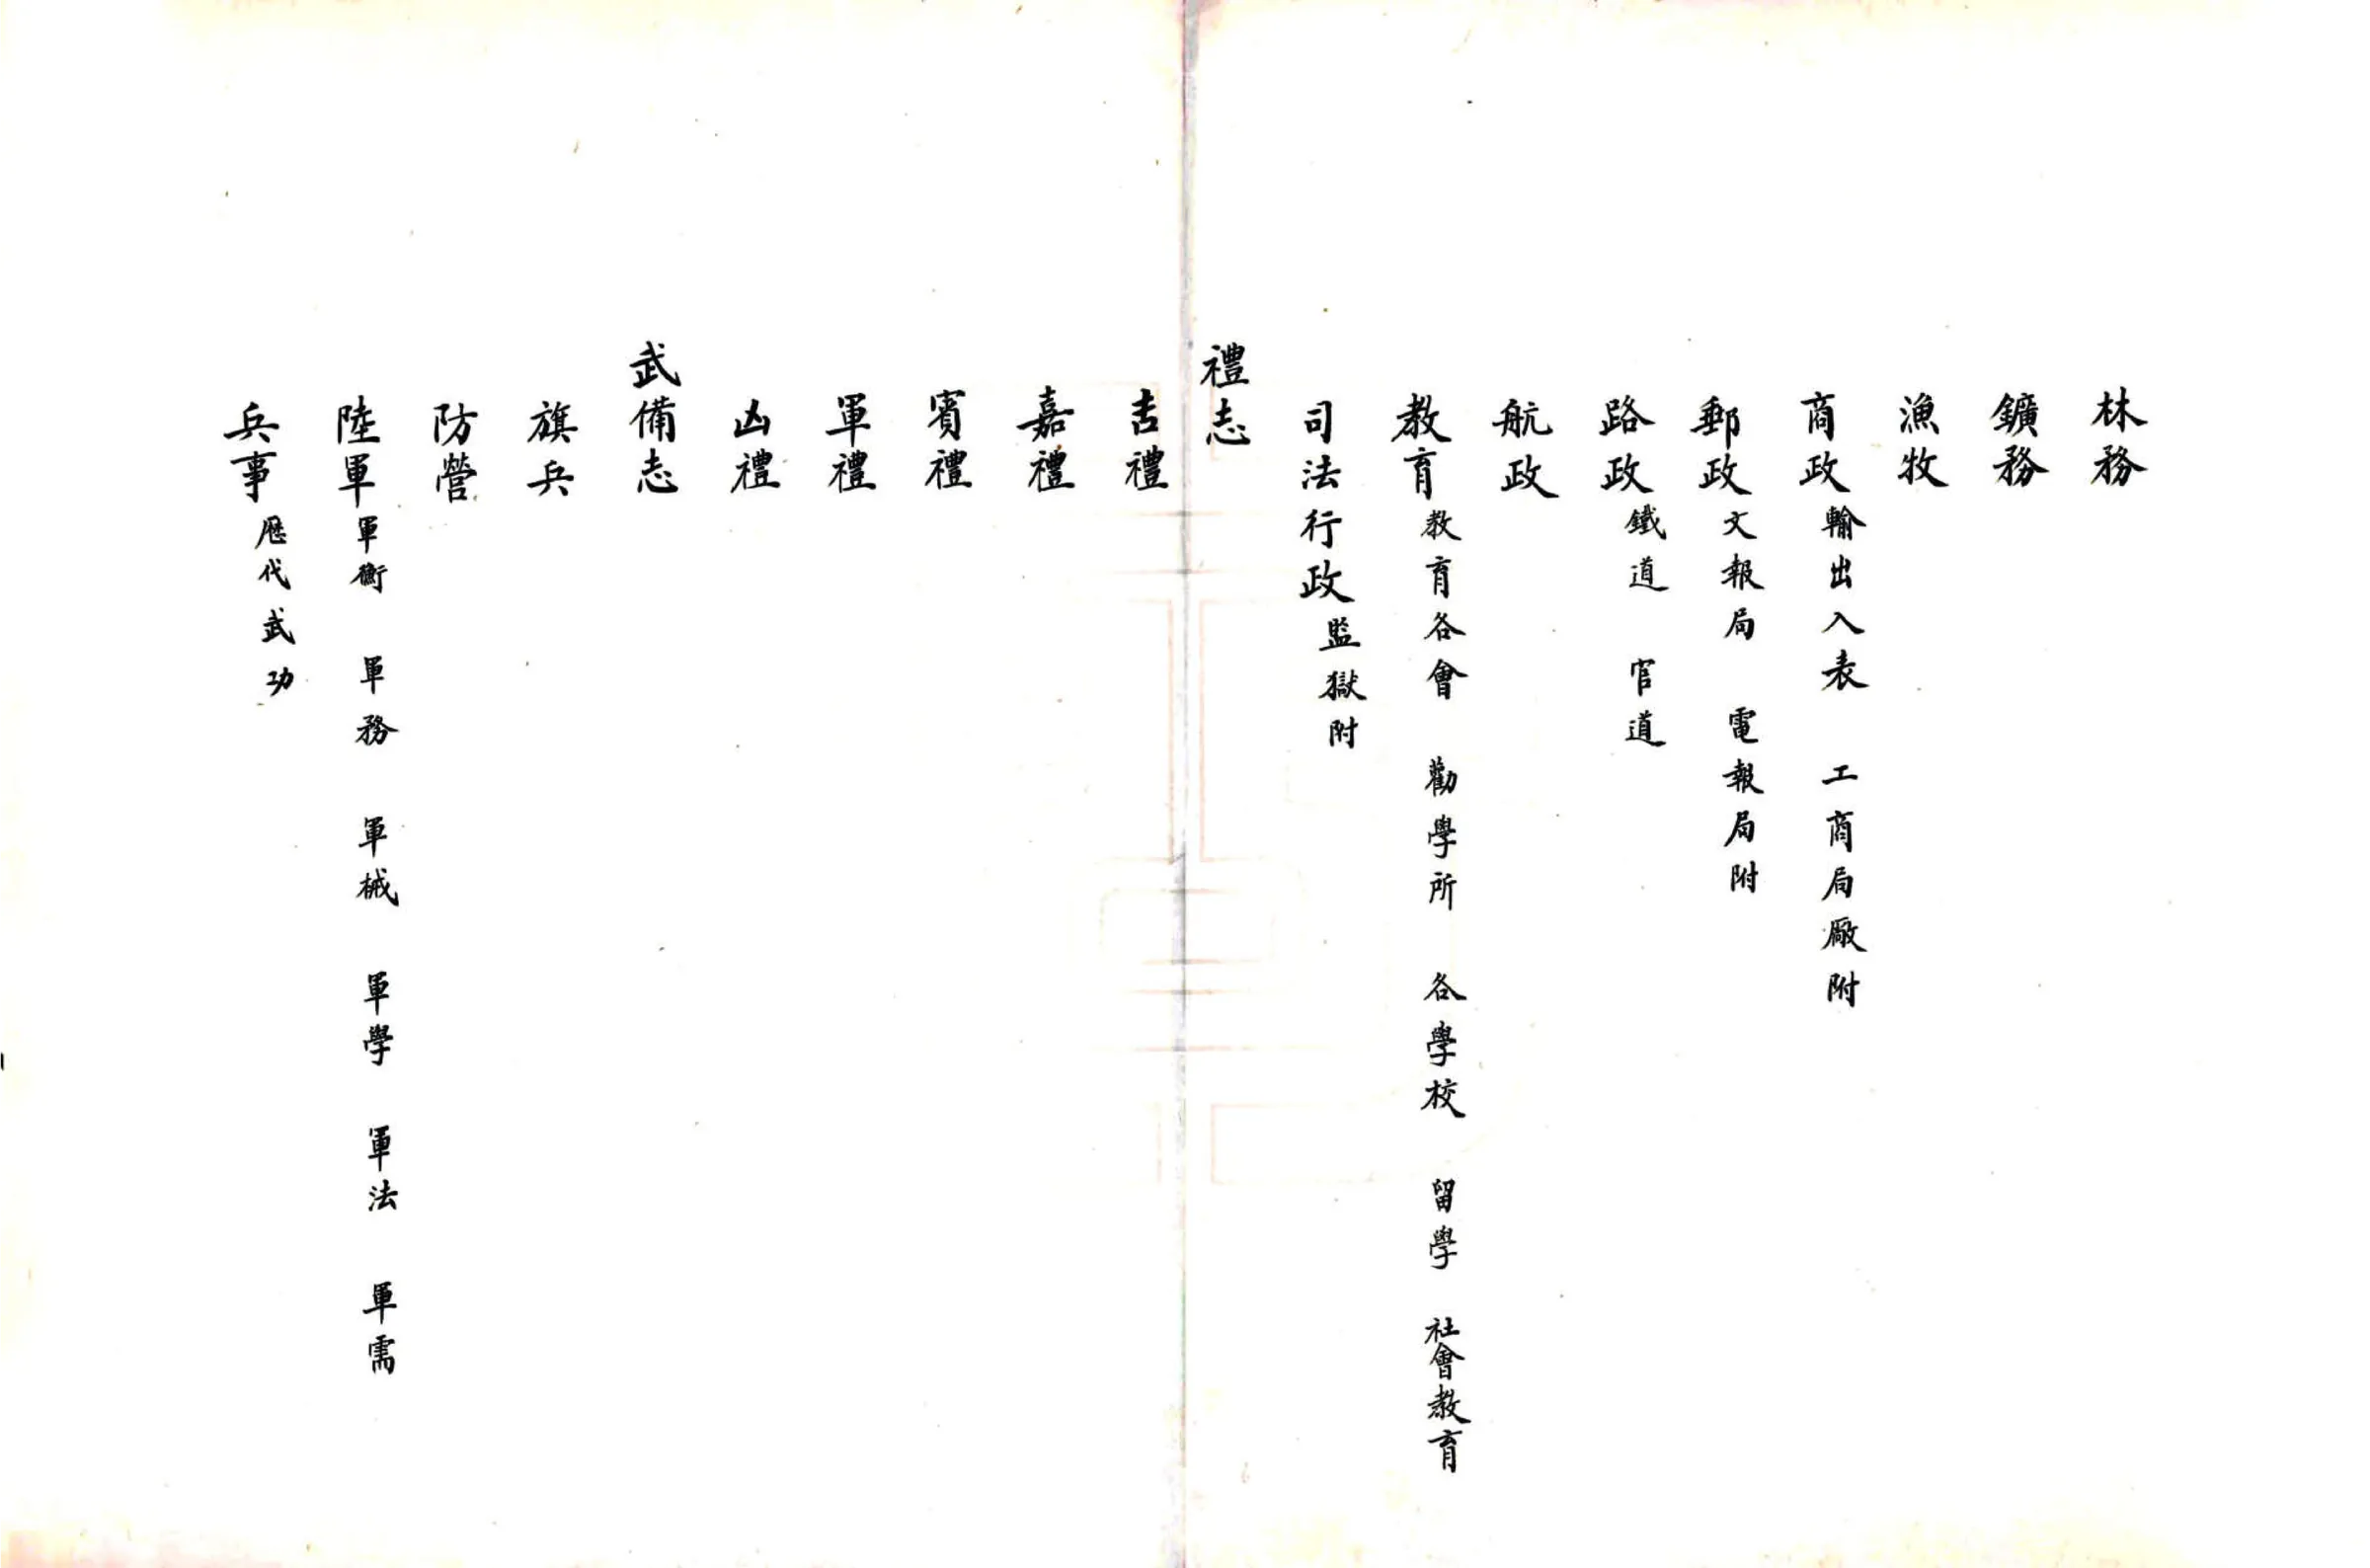 林務
鑛務
漁牧
商政輸出入表　工商局廠附
郵政文報局　電報局附
路政鐵道　官道
航政
教育教育各會　勸學所　各學校　留學　社會教育
司法行政監獄附
禮志
吉禮
嘉禮
賓禮
軍禮
凶禮
武備志
旗兵
防營
陸軍軍衡　軍務　軍械　軍學　軍法　軍需
兵事歷代武功